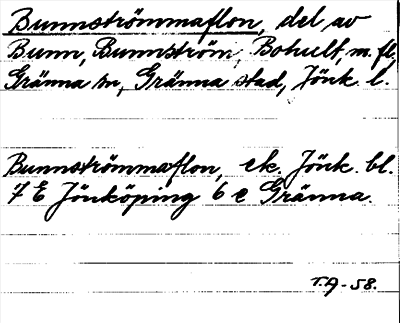 Bunnströmmaflon, del av
Bunn, Bunnström, Bohult, m. fl,
Gränna sn, Gränna stad, Jönk. l.
Bunnströmmaflon, ek. Jönk. bl.
7 E Jönköping 6 e Gränna.
T.A-58.